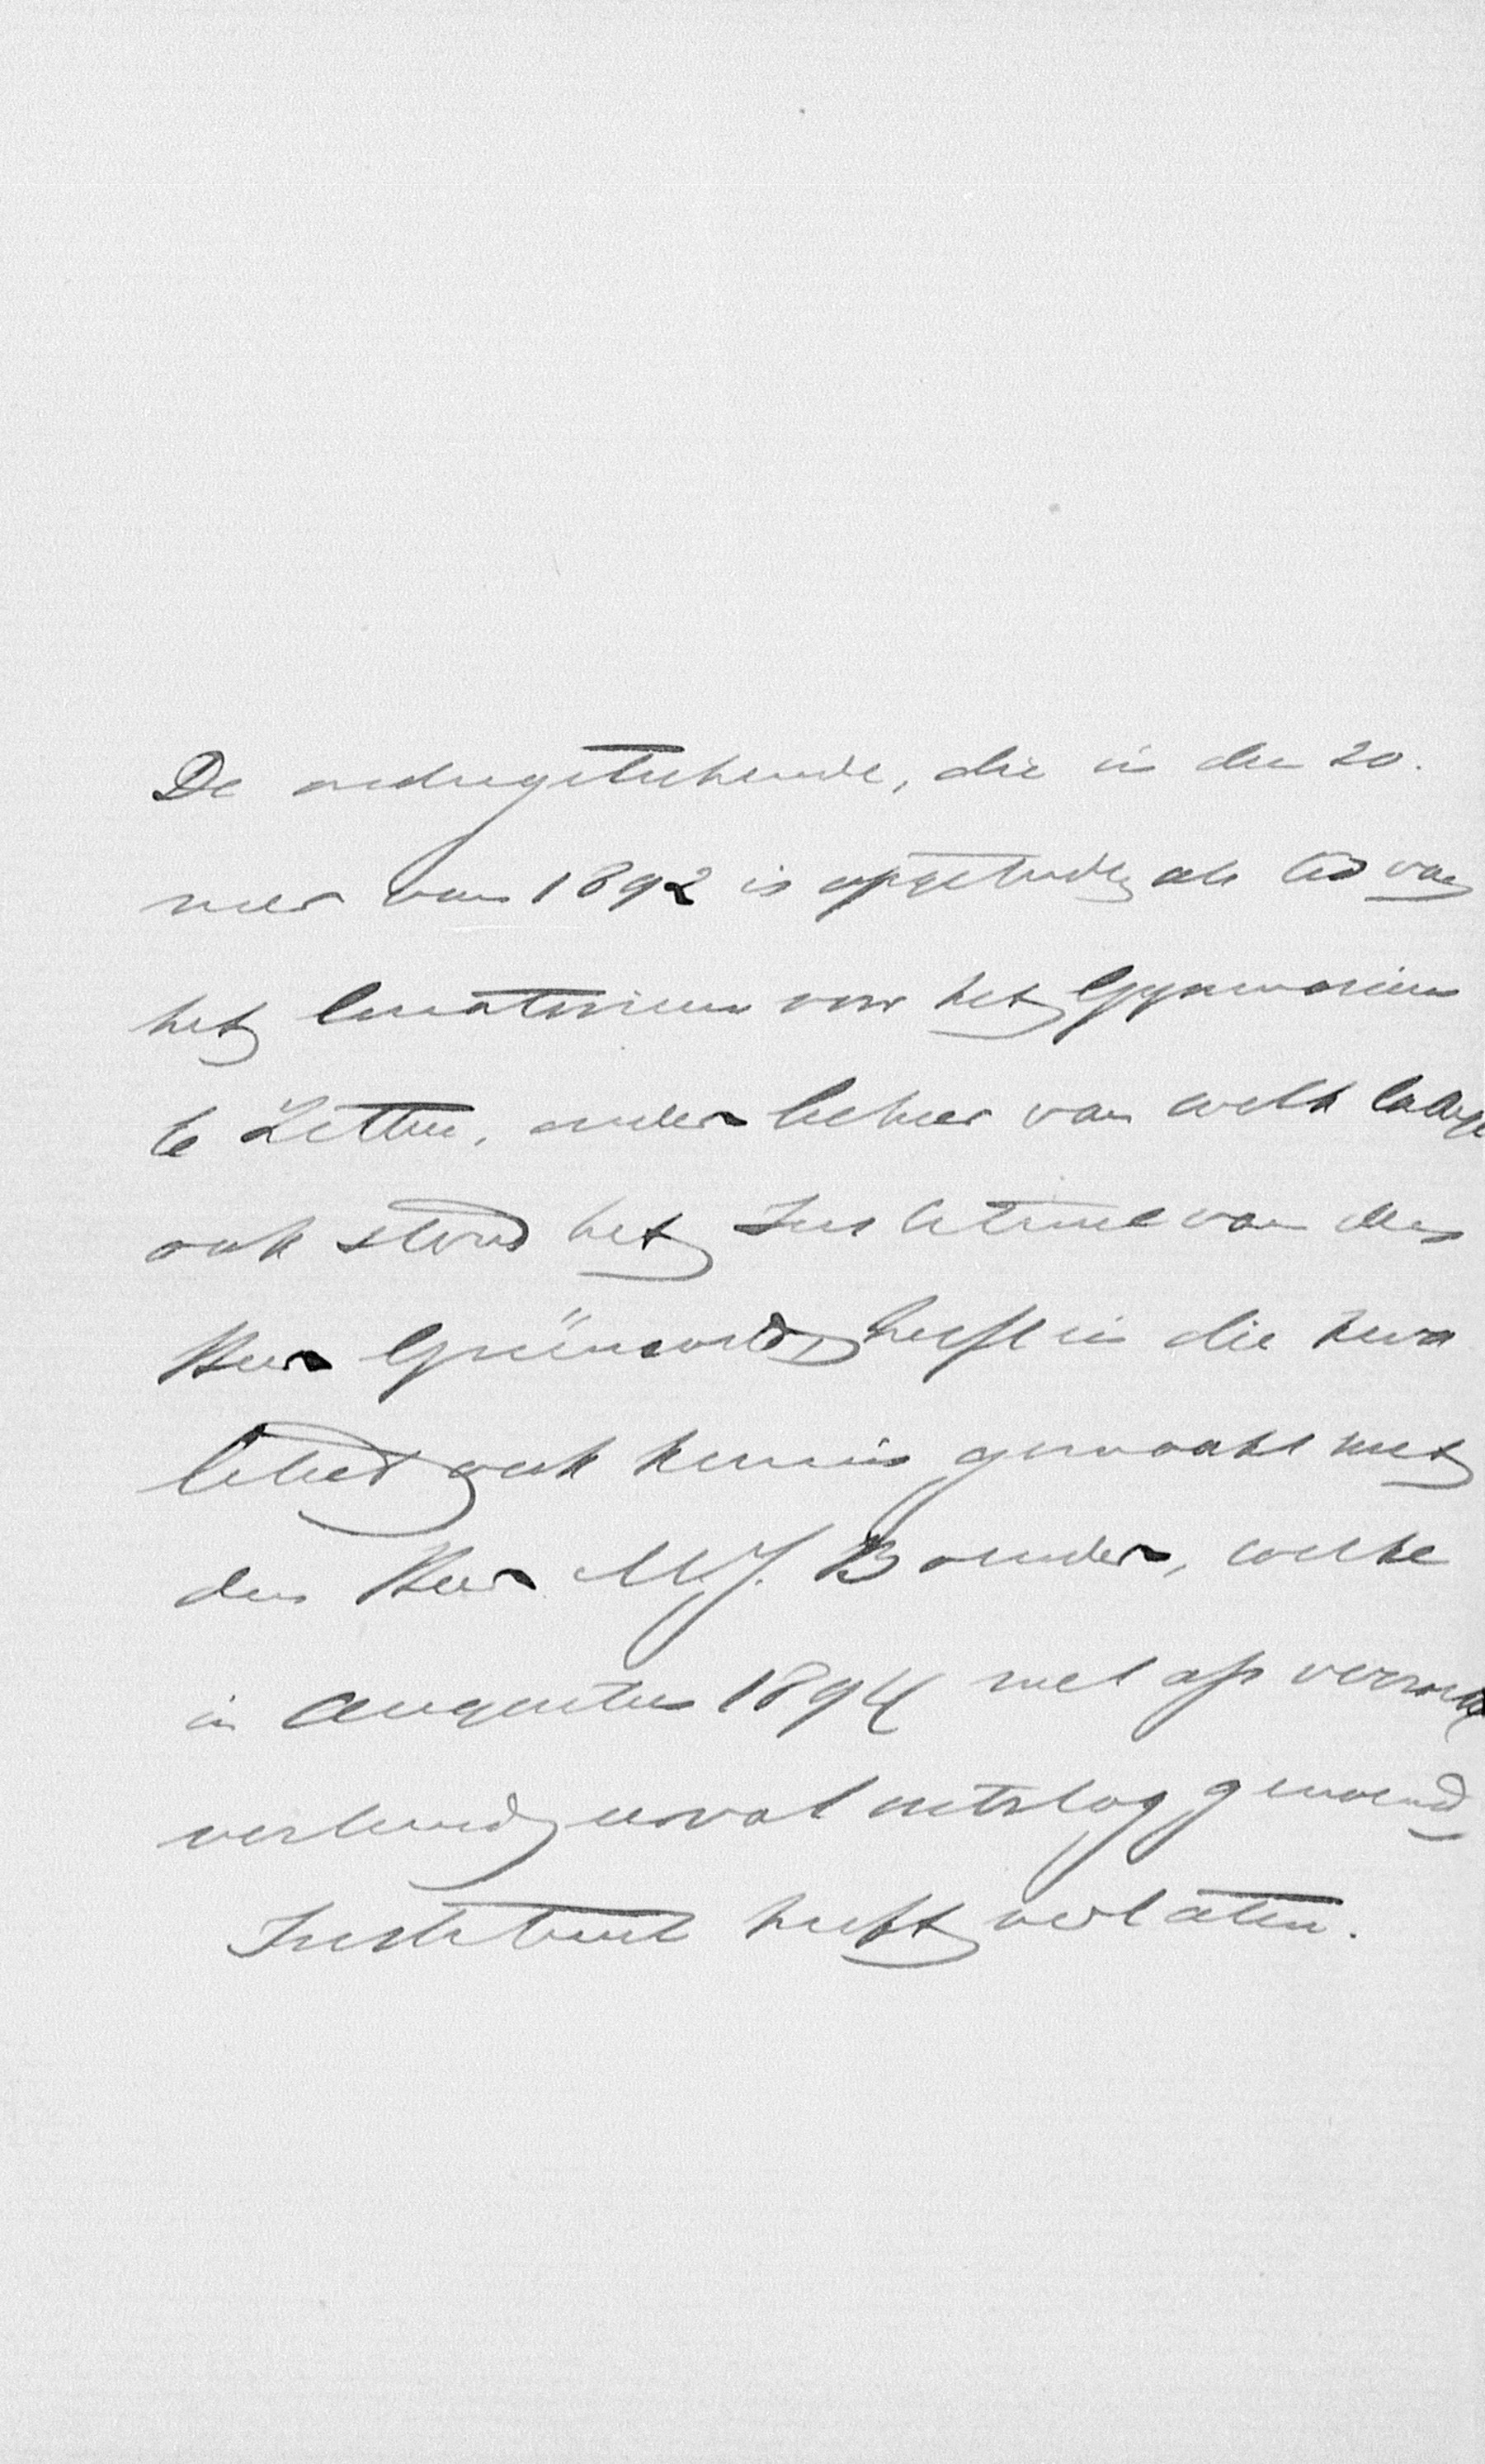 De ondergeteekende, die in den zo-
mer van 1892 is opgetreden als lid van
het Curatorium voor het Gymnasium
te Zetten, onder beheer van welk College
ook stond het Instituut van den
Heer Grünewald, heeft in die kwa
liteit ook kennis gemaakt met
den Heer M.J. Bouder, welke
in Augustus 1894 met op verzoek
verleend eervol ontslag genoemd
Instituut heeft verlaten.